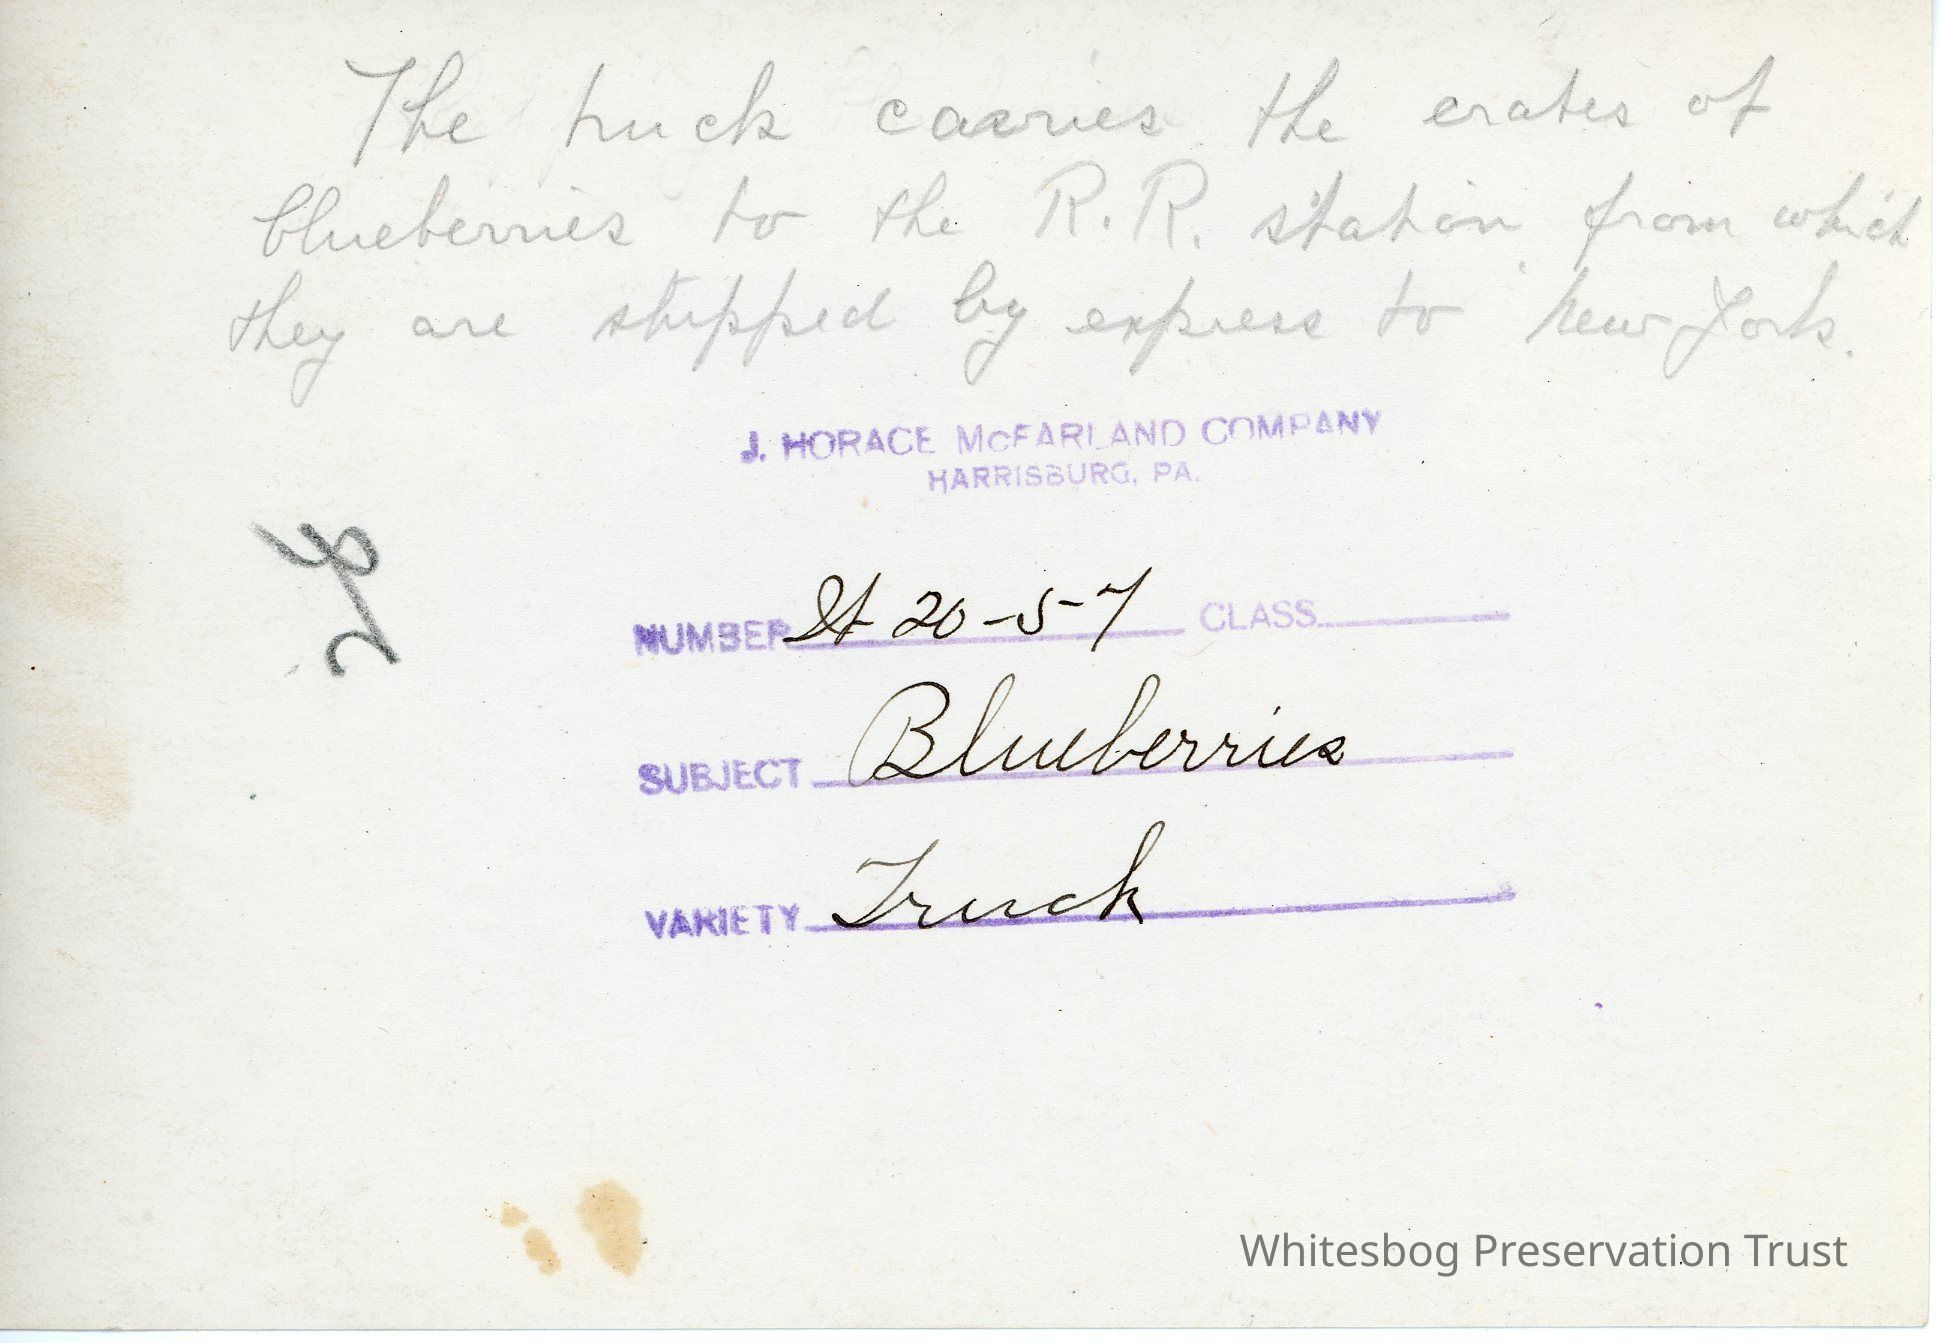 The truck carries the crates of
blueberries to the R.R. station from which
they are shipped by express to New York.
J. HORACE McFARLAND COMPANY
HARRISBURG, PA.
NUMBER 20-5-7 CLASS
SUBJECT Blueberries
VARIETY Truck
Whitesbog Preservation Trust